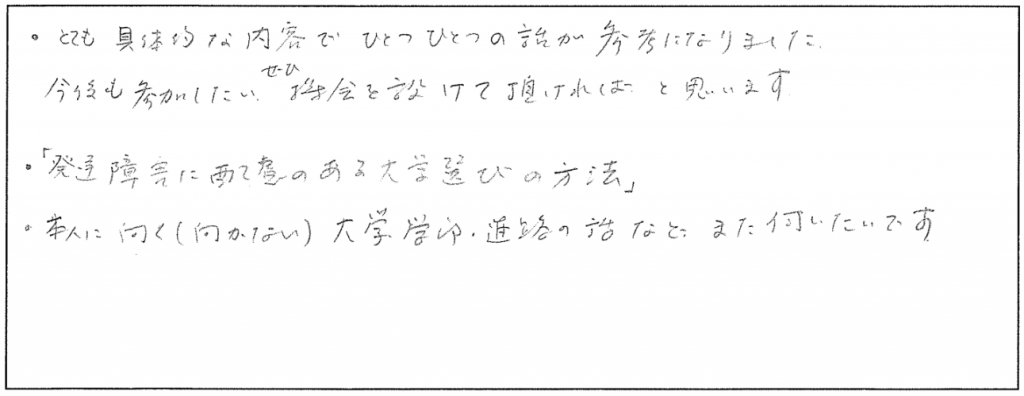 ・とても具体的な内容でひとつひとつの話が参考になりました。
今後も参加したい。ぜひ機会を設けて頂ければと思います
・「発達障害に配慮のある大学選びの方法」
・本人に向く(向かない)大学学部・進路の話などまた伺いたいです